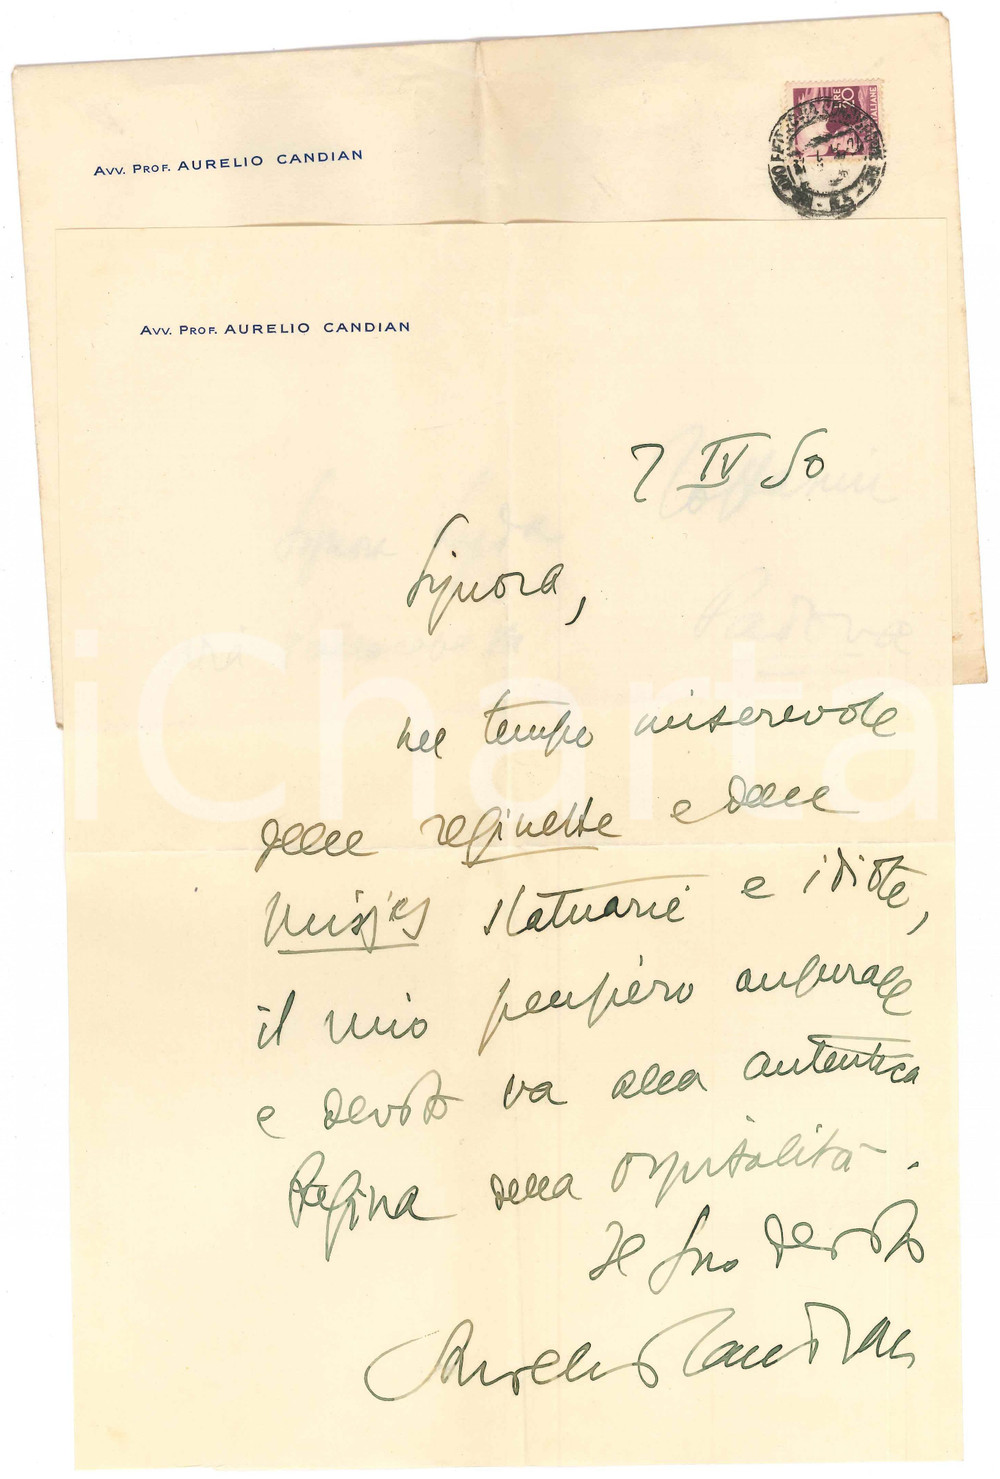 AVV. PROF. AURELIO CANDIAN
LIRE 20
ITALIANE
AVV. PROF. AURELIO CANDIAN
7 IV 50
Signora,
nel tempo miserevole
delle reginette e delle
Missjes statuarie e idiote,
il mio pensiero augurale
e devoto va alla autentica
Regina della ospitalità.
Il Suo devoto
Aurelio Candian
Signora
Padova
iCharta